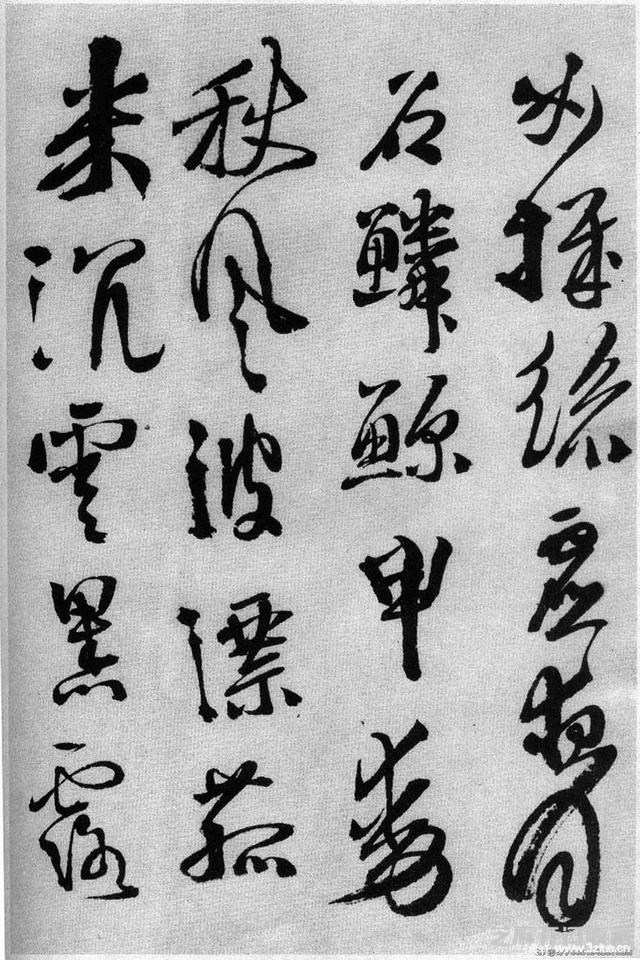 女機絲虛夜月
石鱗鯨甲動
秋風波漂菰
米沉雲黑露
www.3zitie.cn